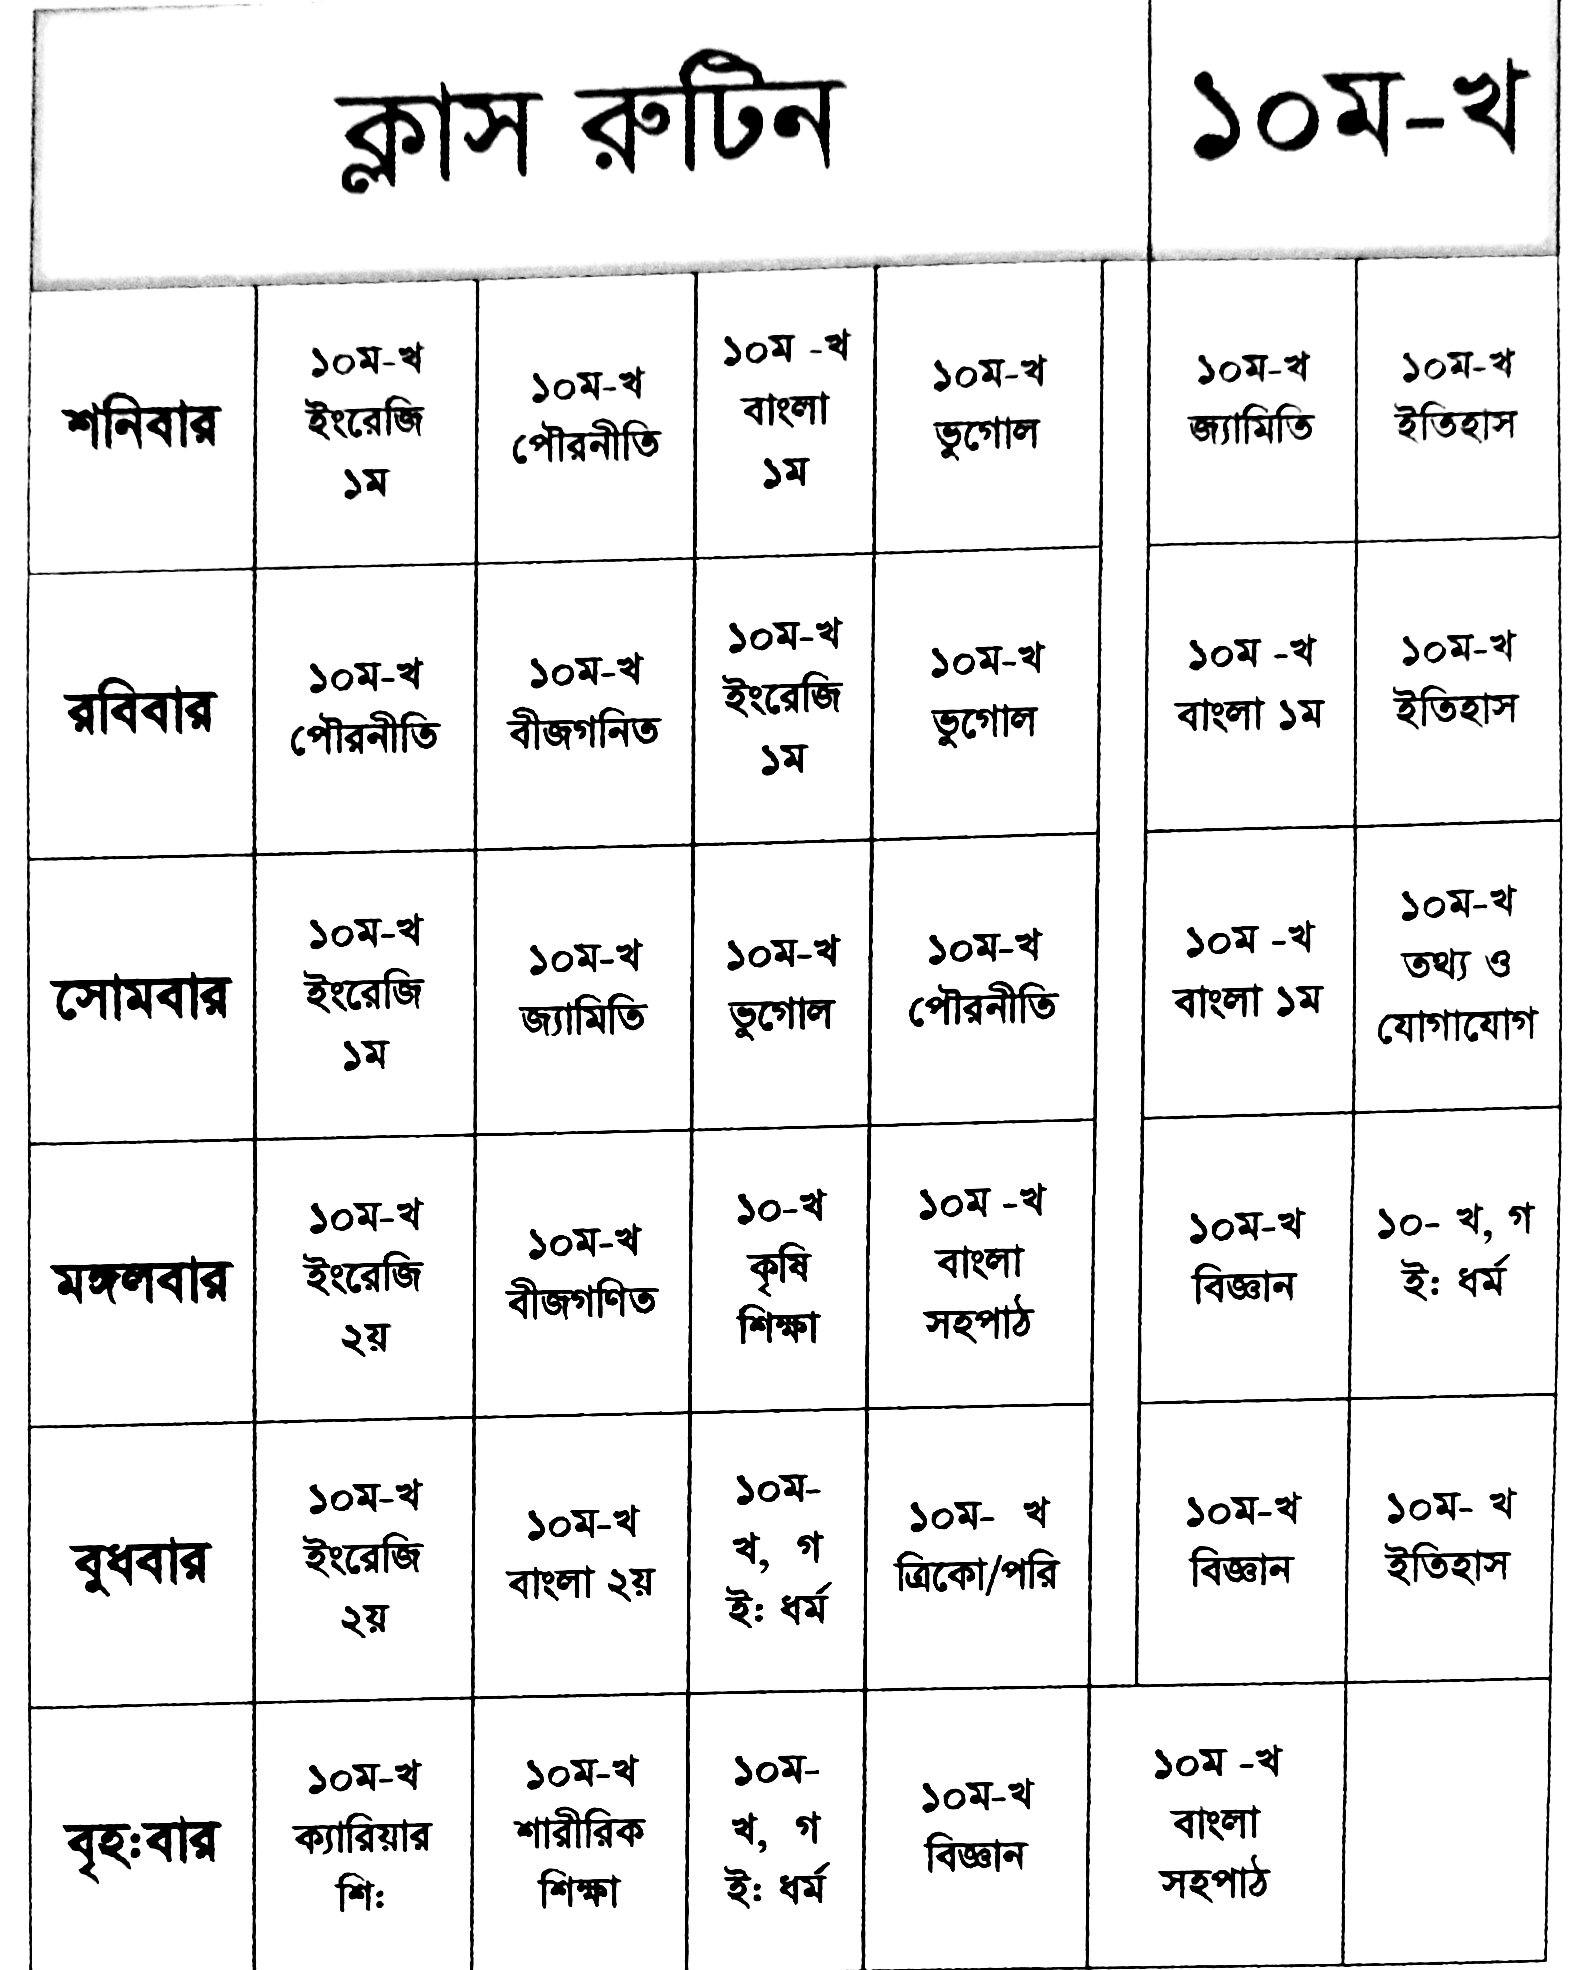 ক্লাস রুটিন
১০ম-খ
শনিবার
১০ম-খ
ইংরেজি
১ম
১০ম-খ
পৌরনীতি
১০ম -খ
বাংলা
১ম
১০ম-খ
ভুগোল
১০ম-খ
জ্যামিতি
১০ম-খ
ইতিহাস
রবিবার
১০ম-খ
পৌরনীতি
১০ম-খ
বীজগনিত
১০ম-খ
ইংরেজি
১ম
১০ম-খ
ভুগোল
১০ম -খ
বাংলা ১ম
১০ম-খ
ইতিহাস
সোমবার
১০ম-খ
ইংরেজি
১ম
১০ম-খ
জ্যামিতি
১০ম-খ
ভুগোল
১০ম-খ
পৌরনীতি
১০ম -খ
বাংলা ১ম
১০ম-খ
তথ্য ও
যোগাযোগ
মঙ্গলবার
১০ম-খ
ইংরেজি
২য়
১০ম-খ
বীজগণিত
১০-খ
কৃষি
শিক্ষা
১০ম -খ
বাংলা
সহপাঠ
১০ম-খ
বিজ্ঞান
১০- খ, গ
ই: ধর্ম
বুধবার
১০ম-খ
ইংরেজি
২য়
১০ম-খ
বাংলা ২য়
১০ম-
খ, গ
ই: ধর্ম
১০ম- খ
ত্রিকো/পরি
১০ম-খ
বিজ্ঞান
১০ম- খ
ইতিহাস
বৃহ:বার
১০ম-খ
ক্যারিয়ার
শি:
১০ম-খ
শারীরিক
শিক্ষা
১০ম-
খ, গ
ই: ধর্ম
১০ম-খ
বিজ্ঞান
১০ম -খ
বাংলা
সহপাঠ